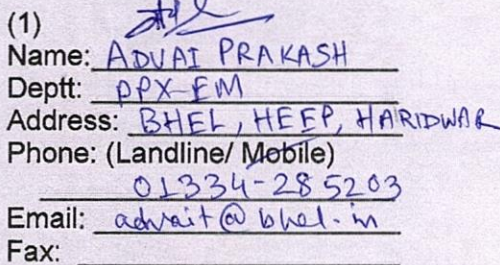 (1)
Name: ADVAI PRAKASH
Deptt: PPX-EM
Address: BHEL, HEEP, HARIDWAR
Phone: (Landline/ Mobile)
01334-285203
Email: advait@bhel.in
Fax: